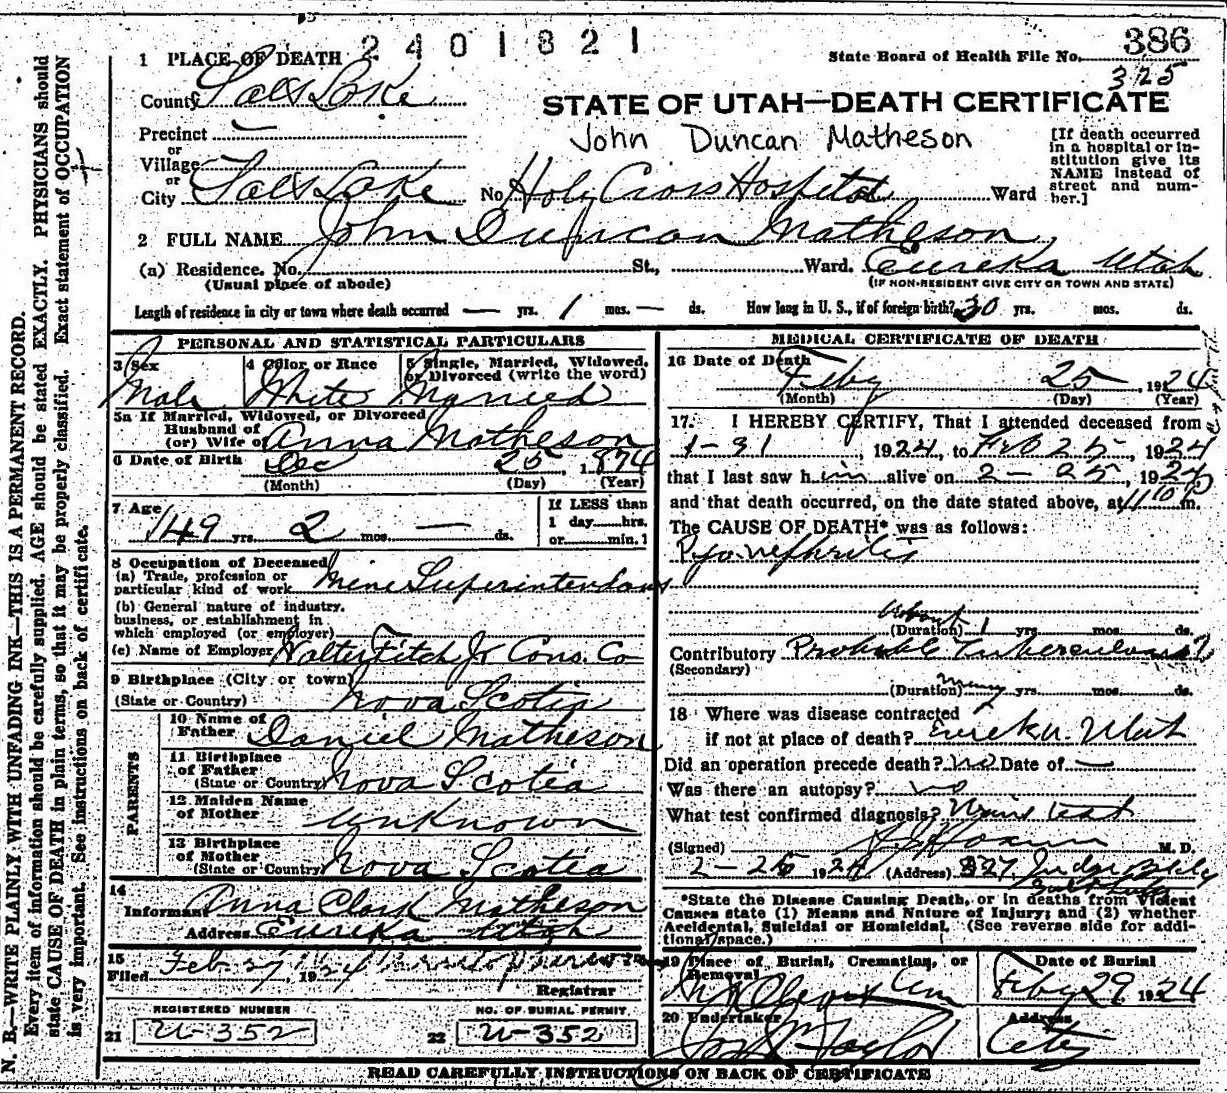 2401821
State Board of Health File No. 386
325
1 PLACE OF DEATH
County Salt Lake
STATE OF UTAH—DEATH CERTIFICATE
John Duncan Matheson
[If death occurred in a hospital or institution give its NAME instead of street and number.]
Precinct —
or
Village
or
City Salt Lake No Holy Cross Hospital Ward
2 FULL NAME John Duncan Matheson
(a) Residence. No. St., Ward. Eureka Utah
(Usual place of abode) (IF NON-RESIDENT GIVE CITY OR TOWN AND STATE)
Length of residence in city or town where death occurred — yrs. 1 mos. — ds. How long in U. S., if of foreign birth? 30 yrs. mos. ds.
PERSONAL AND STATISTICAL PARTICULARS
3 Sex 4 Color or Race 5 Single, Married, Widowed, or Divorced (write the word)
Male White Married
5a If Married, Widowed, or Divorced
Husband of
(or) Wife of Anna Matheson
6 Date of Birth Dec 25, 1874
(Month) (Day) (Year)
7 Age 49 yrs. 2 mos. — ds.
If LESS than
1 day hrs.
or min.
8 Occupation of Deceased
(a) Trade, profession or
particular kind of work Mine Superintendent
(b) General nature of industry,
business, or establishment in
which employed (or employer)
(c) Name of Employer Walter Fitch Jr Cons. Co
9 Birthplace (City or town)
(State or Country) Nova Scotia
PARENTS
10 Name of
Father Daniel Matheson
11 Birthplace
of Father
(State or Country) Nova Scotia
12 Maiden Name
of Mother Unknown
13 Birthplace
of Mother
(State or Country) Nova Scotia
14
Informant Anna Clark Matheson
Address Eureka Utah
15
Filed Feb. 27, 1924
Registrar
REGISTERED NUMBER NO. OF BURIAL PERMIT
21 U-352 22 U-352
MEDICAL CERTIFICATE OF DEATH
16 Date of Death
Feby 25, 1924
(Month) (Day) (Year)
17. I HEREBY CERTIFY, That I attended deceased from
, 1924, to Feb 25, 1924
that I last saw him alive on 2-25, 1924
and that death occurred, on the date stated above, at 11 10 P m.
The CAUSE OF DEATH* was as follows:
Pyonephritis
About
(Duration) 1 yrs. mos. ds.
Contributory Probable Tuberculosis?
(Secondary)
(Duration) Many yrs. mos. ds.
18 Where was disease contracted
if not at place of death? Eureka. Utah
Did an operation precede death? no Date of —
Was there an autopsy? no
What test confirmed diagnosis? Urine test
(Signed) M. D.
2-25 1924 (Address)
*State the Disease Causing Death, or in deaths from Violent
Causes state (1) Means and Nature of Injury; and (2) whether
Accidental, Suicidal or Homicidal. (See reverse side for additional space.)
19 Place of Burial, Cremation, or Removal Date of Burial
Mt Olivet Cem Feby 29 1924
20 Undertaker Address
Taylor City
READ CAREFULLY INSTRUCTIONS ON BACK OF CERTIFICATE
N. B.—WRITE PLAINLY WITH UNFADING INK—THIS IS A PERMANENT RECORD.
Every item of information should be carefully supplied. AGE should be stated EXACTLY. PHYSICIANS should
state CAUSE OF DEATH in plain terms, so that it may be properly classified. Exact statement of OCCUPATION
is very important. See instructions on back of certificate.